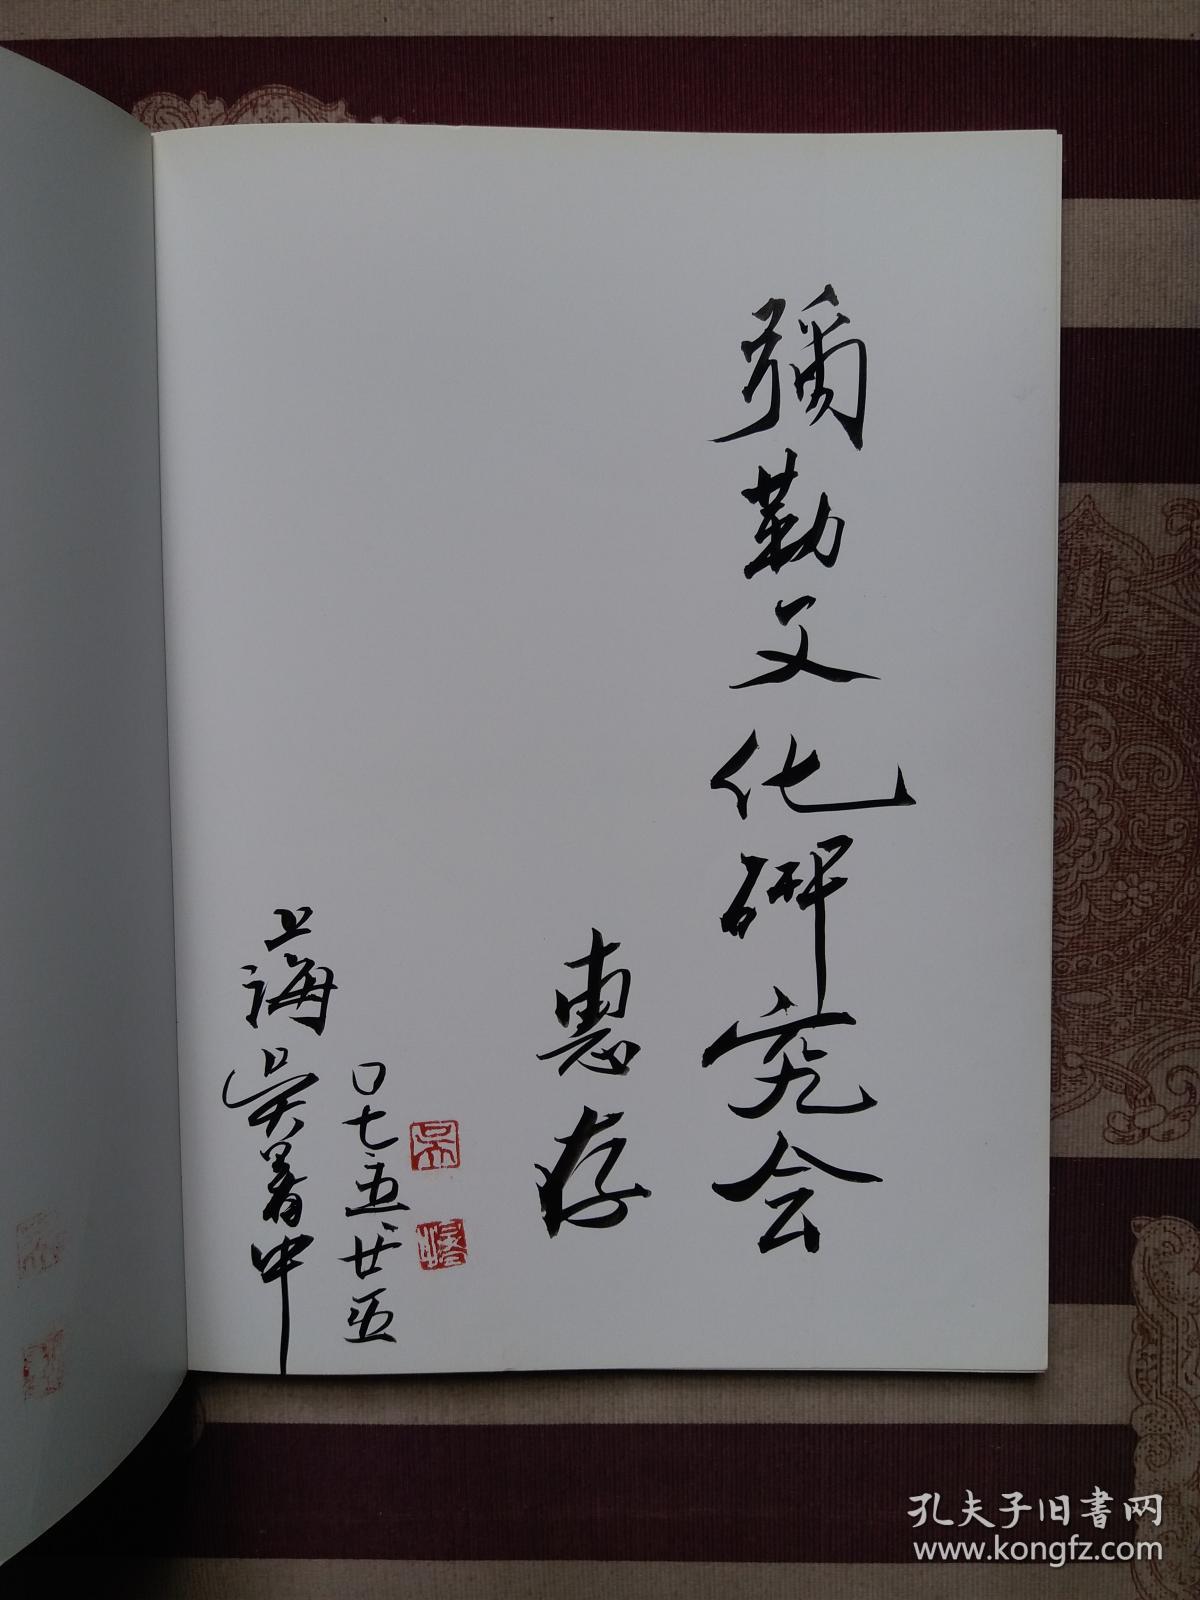 彌勒文化研究会
惠存
〇七五、廿五
上海吴暑中
孔夫子旧書网
www.kongfz.com